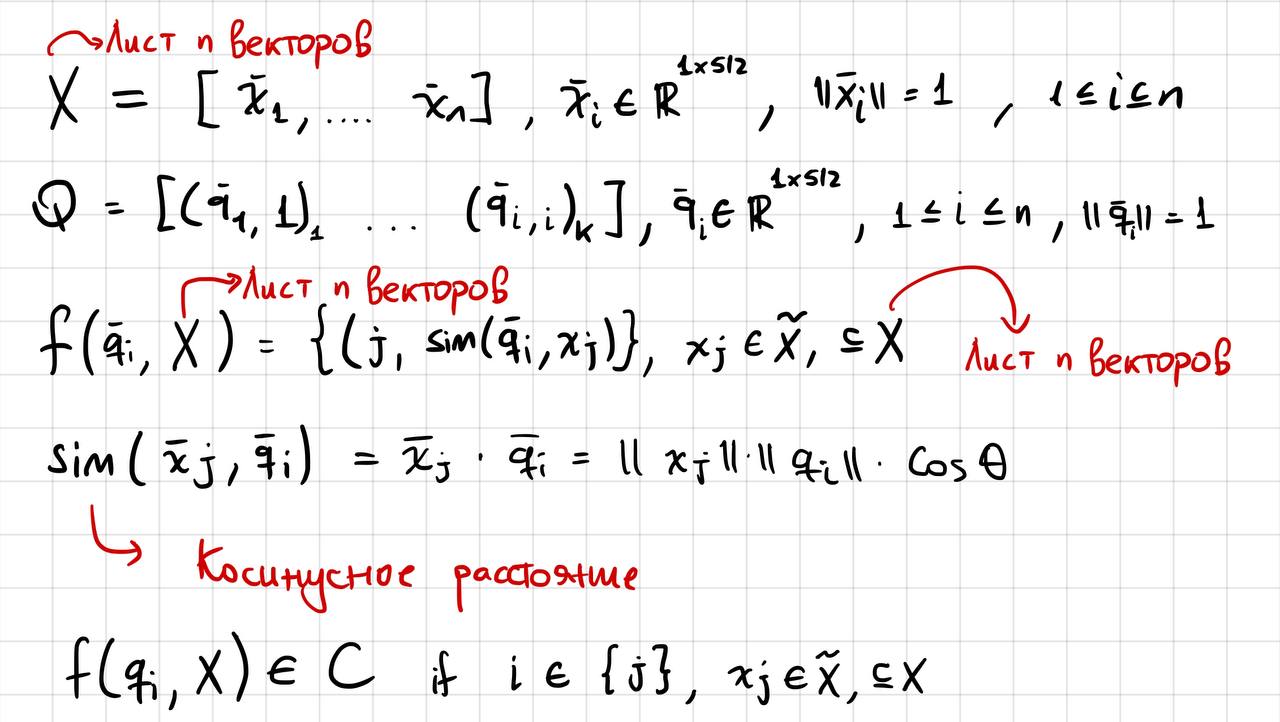 Лист n векторов
X = [x̄₁, .... x̄ₙ], x̄ᵢ ∈ ℝ¹ˣ⁵¹², ||x̄ᵢ|| = 1, 1 ≤ i ≤ n
Q = [(q̄₁, 1)₁ ... (q̄ᵢ, i)ₖ], q̄ᵢ ∈ ℝ¹ˣ⁵¹², 1 ≤ i ≤ n, ||q̄ᵢ|| = 1
Лист n векторов
f(q̄ᵢ, X) = {(j, sim(q̄ᵢ, xⱼ)}, xⱼ ∈ X̃, ⊆ X
Лист n векторов
sim(x̄ⱼ, q̄ᵢ) = x̄ⱼ · q̄ᵢ = ||xⱼ||·||qᵢ||· cos θ
Косинусное расстояние
f(qᵢ, X) ∈ C if i ∈ {j}, xⱼ ∈ X̃, ⊆ X